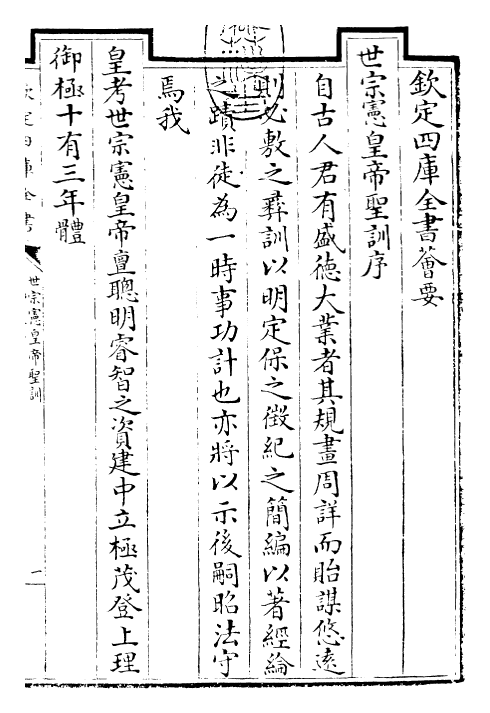 欽定四庫全書薈要
世宗憲皇帝聖訓序
自古人君有盛徳大業者其規畫周詳而貽謀悠遠
則必敷之彛訓以明定保之徴紀之簡編以著經綸
之蹟非徒為一時事功計也亦將以示後嗣昭法守
焉我
皇考世宗憲皇帝亶聰明睿智之資建中立極茂登上理
御極十有三年體
欽定四庫全書
世宗憲皇帝聖訓
一